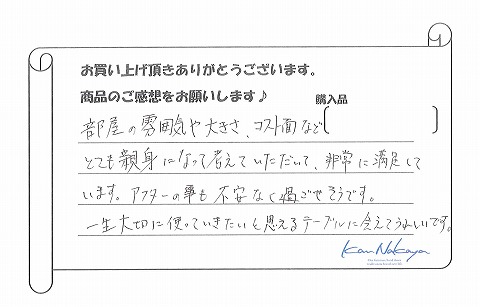 お買い上げ頂きありがとうございます。
商品のご感想をお願いします♪
購入品
部屋の雰囲気や大きさ、コスト面など
とても親身になって考えていただいて、非常に満足して
います。アフターの事も不安なく過ごせそうです。
一生大切に使っていきたいと思えるテーブルに会えてうれしいです。
Kan Nakaya